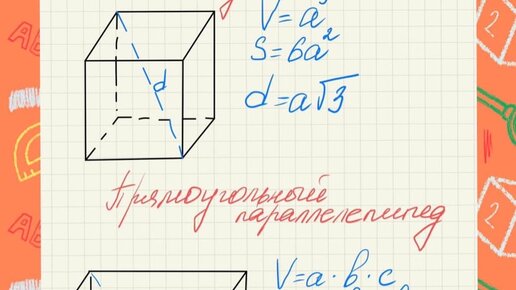 V=a³
S=6a²
d
d=a√3
Прямоугольный
параллелепипед
V=a·b·c